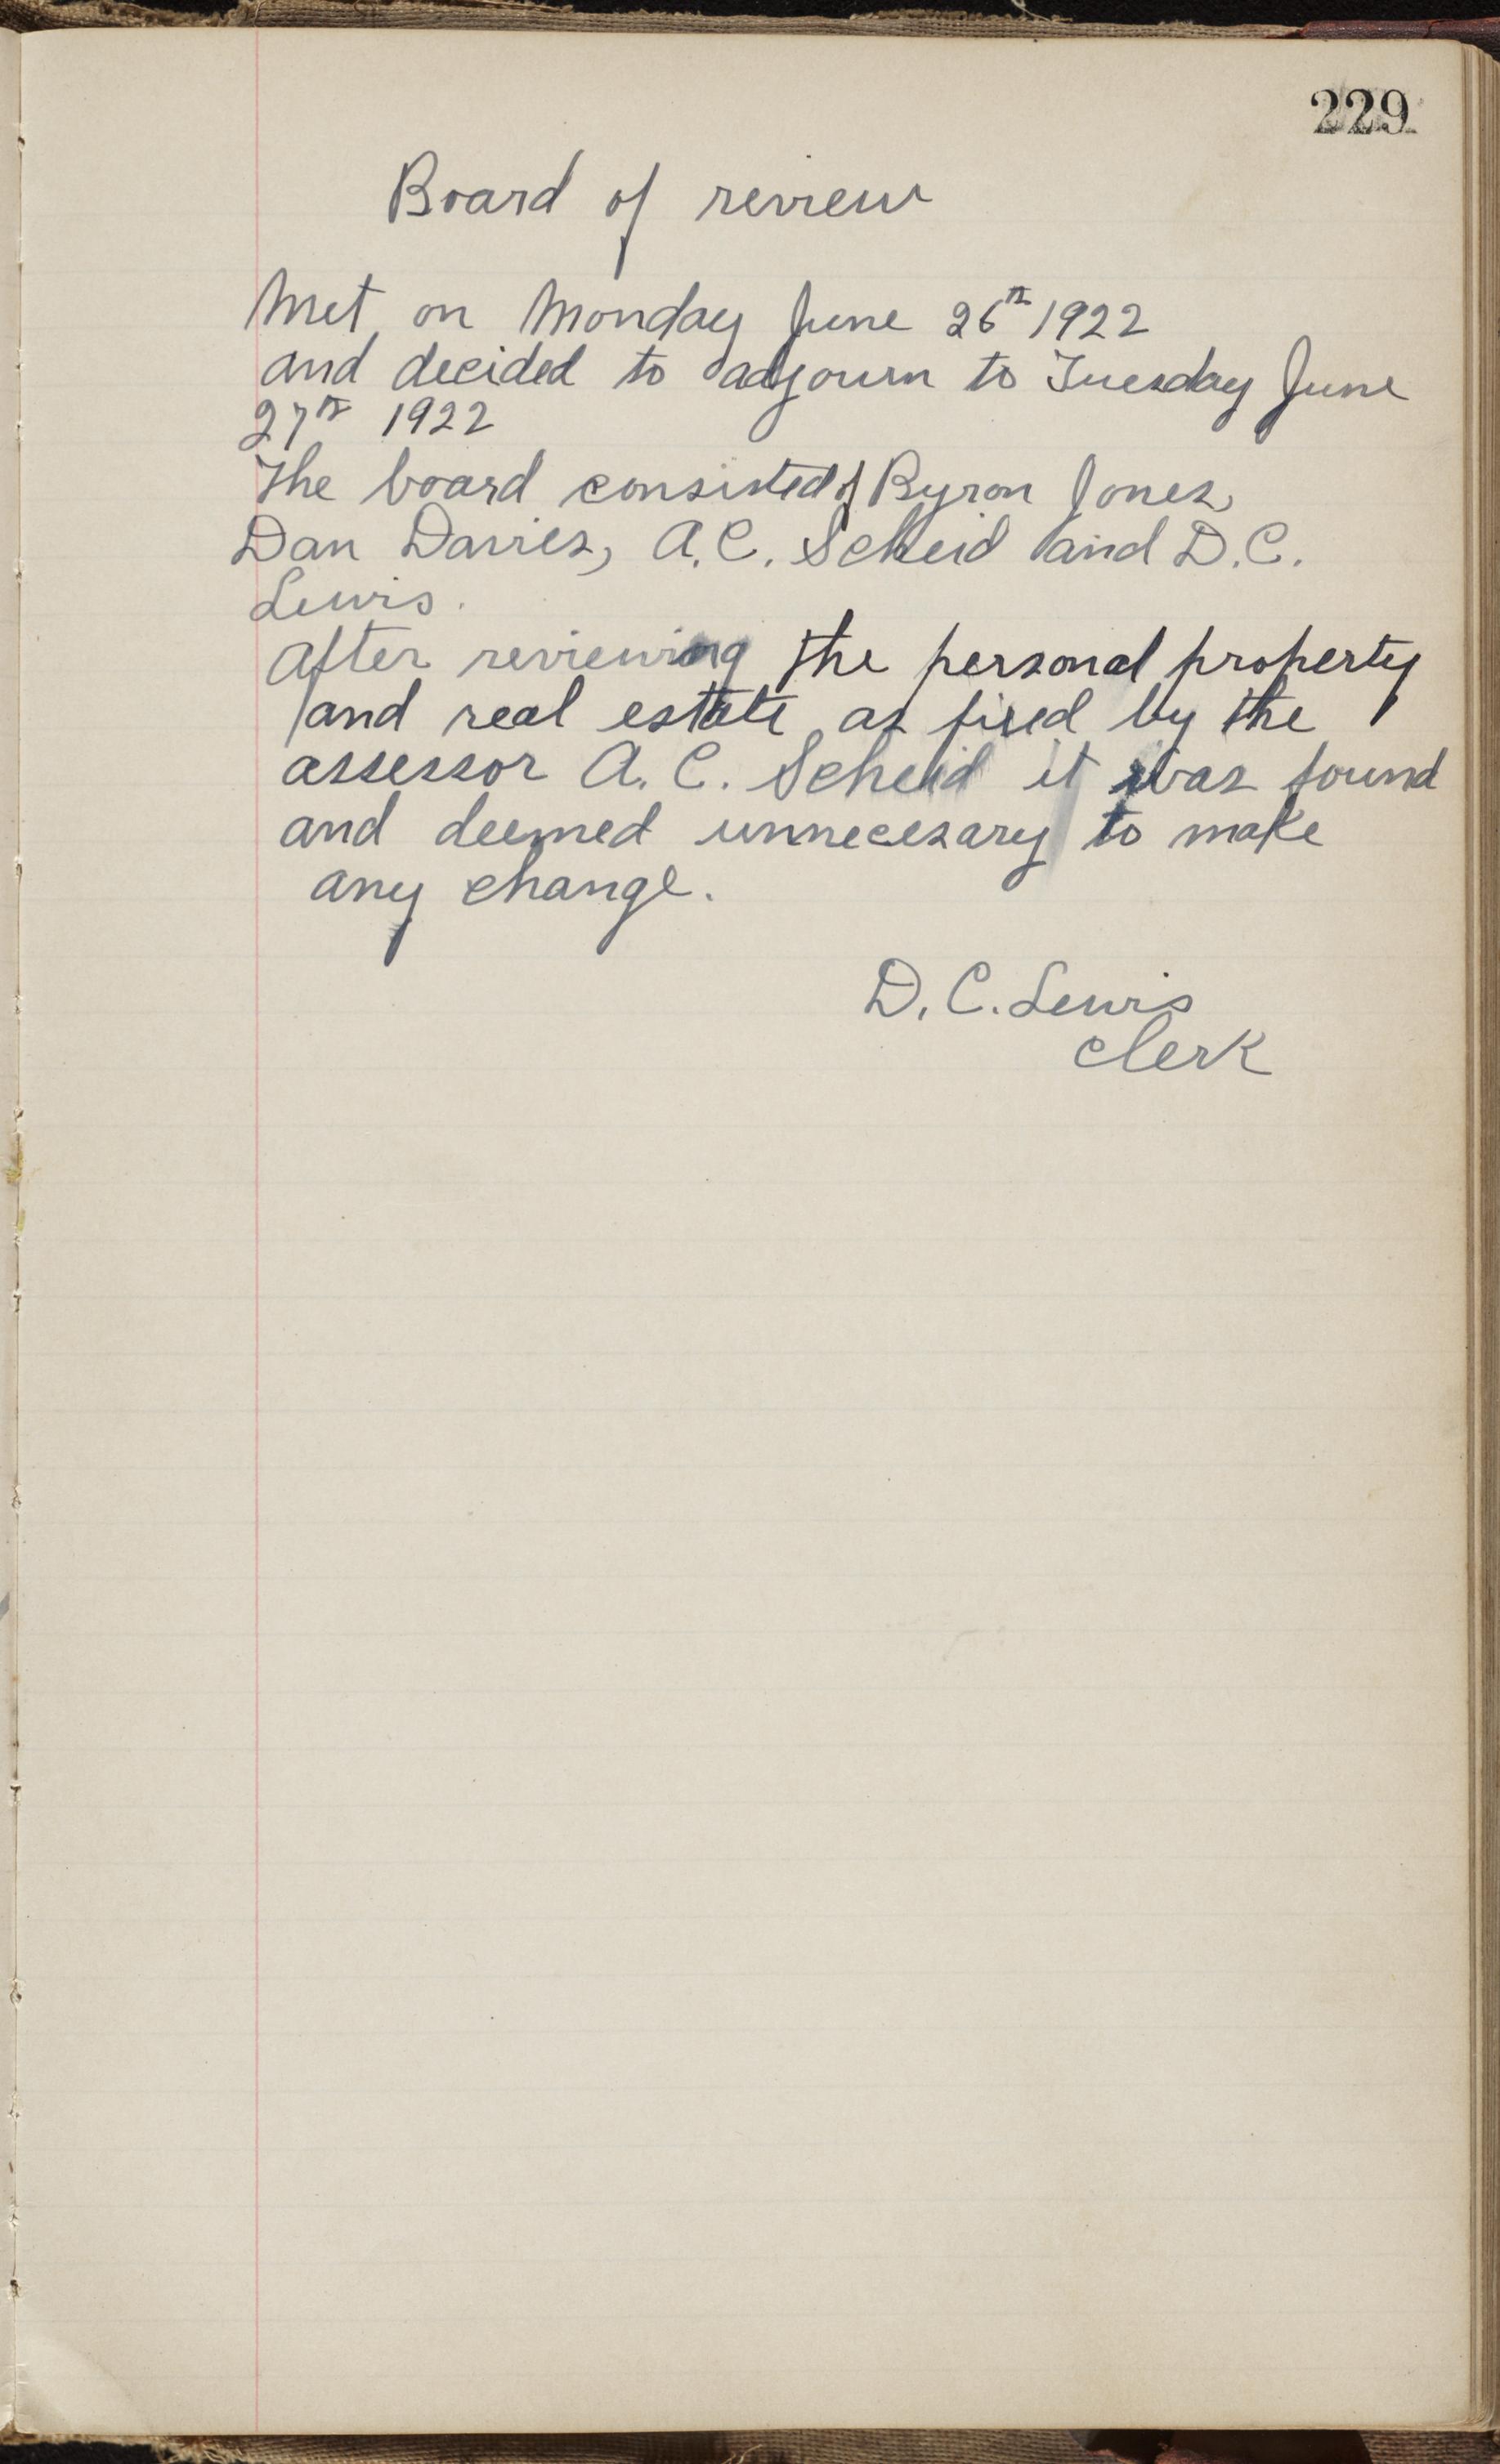 229
Board of review
Met on Monday June 26th 1922
and decided to adjourn to Tuesday June
27th 1922
The board consisted of Byron Jones,
Dan Davies, A.C. Scheid and D.C.
Lewis.
After reviewing the personal property
and real estate as fixed by the
assessor A.C. Scheid it was found
and deemed unnecesary to make
any change.
D.C. Lewis
Clerk